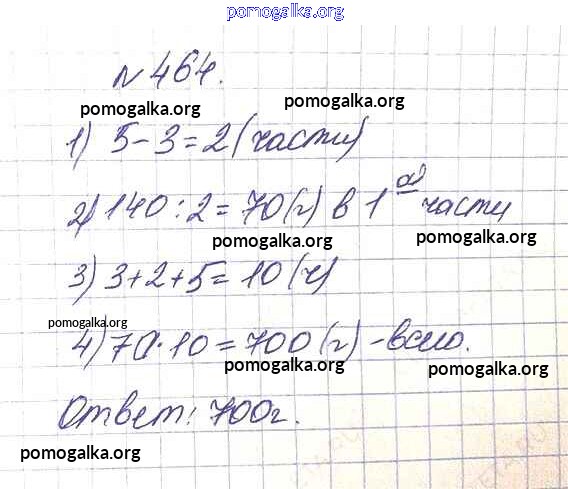 pomogalka.org
N 464.
pomogalka.org
pomogalka.org
1) 5-3=2 (части)
2) 140:2=70(г) в 1ой части
pomogalka.org
pomogalka.org
3) 3+2+5=10 (ч)
pomogalka.org
4) 70·10=700(г) -всего.
pomogalka.org
pomogalka.org
Ответ: 700г.
pomogalka.org